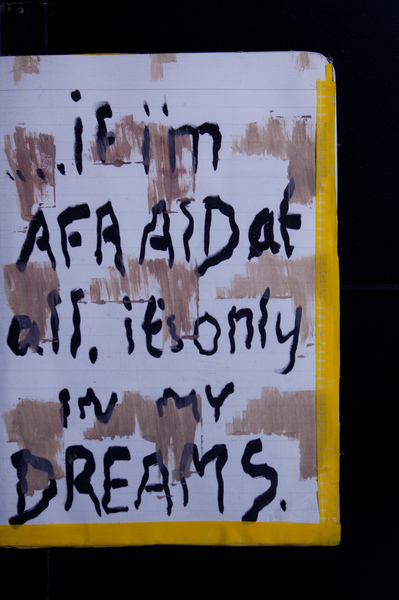 ...if i'm
AFRAID at
all, it's only
in my
DREAMS.